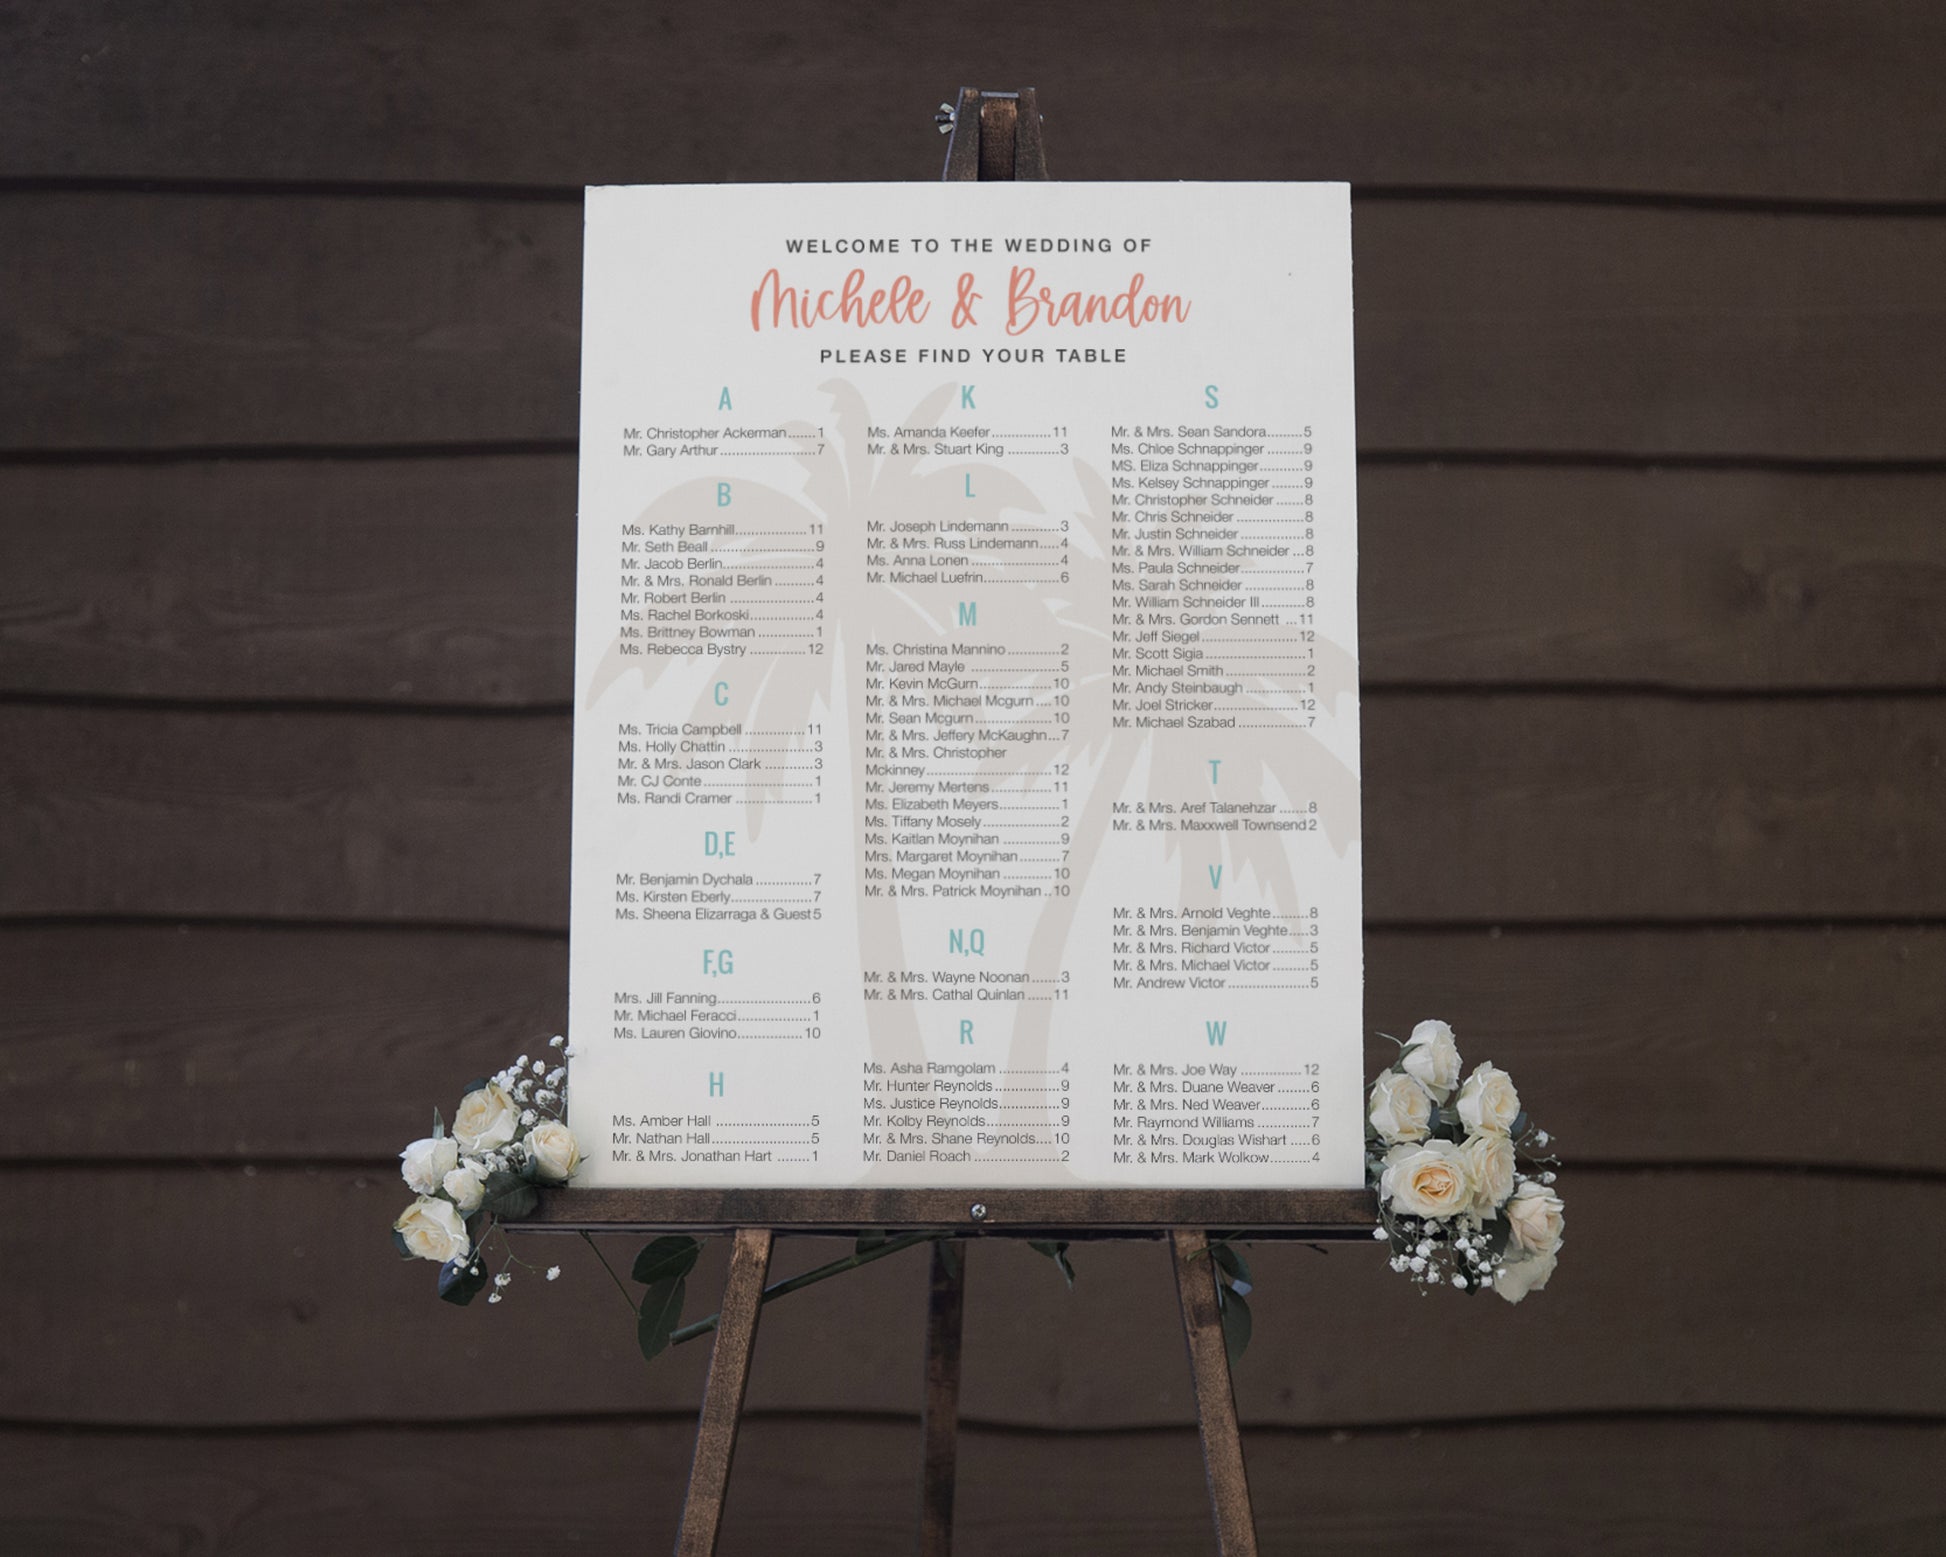 WELCOME TO THE WEDDING OF
Michele & Brandon
PLEASE FIND YOUR TABLE
A
Mr. Christopher Ackerman.......1
Mr. Gary Arthur.......................7
B
Ms. Kathy Barnhill..................11
Mr. Seth Beall ..........................9
Mr. Jacob Berlin.......................4
Mr. & Mrs. Ronald Berlin ..........4
Mr. Robert Berlin .....................4
Ms. Rachel Borkoski................4
Ms. Brittney Bowman ..............1
Ms. Rebecca Bystry ..............12
C
Ms. Tricia Campbell ...............11
Ms. Holly Chattin .....................3
Mr. & Mrs. Jason Clark ............3
Mr. CJ Conte...........................1
Ms. Randi Cramer ...................1
D,E
Mr. Benjamin Dychala ..............7
Ms. Kirsten Eberly....................7
Ms. Sheena Elizarraga & Guest5
F,G
Mrs. Jill Fanning.......................6
Mr. Michael Feracci..................1
Ms. Lauren Giovino................10
H
Ms. Amber Hall .......................5
Mr. Nathan Hall........................5
Mr. & Mrs. Jonathan Hart ........1
K
Ms. Amanda Keefer...............11
Mr. & Mrs. Stuart King .............3
L
Mr. Joseph Lindemann ............3
Mr. & Mrs. Russ Lindemann.....4
Ms. Anna Lonen ......................4
Mr. Michael Luefrin...................6
M
Ms. Christina Mannino .............2
Mr. Jared Mayle ......................5
Mr. Kevin McGurn..................10
Mr. & Mrs. Michael Mcgurn ....10
Mr. Sean Mcgurn...................10
Mr. & Mrs. Jeffery McKaughn...7
Mr. & Mrs. Christopher
Mckinney...............................12
Mr. Jeremy Mertens...............11
Ms. Elizabeth Meyers...............1
Ms. Tiffany Mosely...................2
Ms. Kaitlan Moynihan ..............9
Mrs. Margaret Moynihan..........7
Ms. Megan Moynihan ............10
Mr. & Mrs. Patrick Moynihan ..10
N,Q
Mr. & Mrs. Wayne Noonan.......3
Mr. & Mrs. Cathal Quinlan ......11
R
Ms. Asha Ramgolam ...............4
Mr. Hunter Reynolds ................9
Ms. Justice Reynolds...............9
Mr. Kolby Reynolds..................9
Mr. & Mrs. Shane Reynolds....10
Mr. Daniel Roach .....................2
S
Mr. & Mrs. Sean Sandora.........5
Ms. Chloe Schnappinger .........9
MS. Eliza Schnappinger...........9
Ms. Kelsey Schnappinger ........9
Mr. Christopher Schneider .......8
Mr. Chris Schneider .................8
Mr. Justin Schneider ................8
Mr. & Mrs. William Schneider ...8
Ms. Paula Schneider................7
Ms. Sarah Schneider ...............8
Mr. William Schneider III...........8
Mr. & Mrs. Gordon Sennett ...11
Mr. Jeff Siegel........................12
Mr. Scott Sigia.........................1
Mr. Michael Smith....................2
Mr. Andy Steinbaugh ...............1
Mr. Joel Stricker.....................12
Mr. Michael Szabad .................7
T
Mr. & Mrs. Aref Talanehzar .......8
Mr. & Mrs. Maxxwell Townsend2
V
Mr. & Mrs. Arnold Veghte.........8
Mr. & Mrs. Benjamin Veghte.....3
Mr. & Mrs. Richard Victor .........5
Mr. & Mrs. Michael Victor .........5
Mr. Andrew Victor ....................5
W
Mr. & Mrs. Joe Way ...............12
Mr. & Mrs. Duane Weaver ........6
Mr. & Mrs. Ned Weaver............6
Mr. Raymond Williams .............7
Mr. & Mrs. Douglas Wishart .....6
Mr. & Mrs. Mark Wolkow..........4